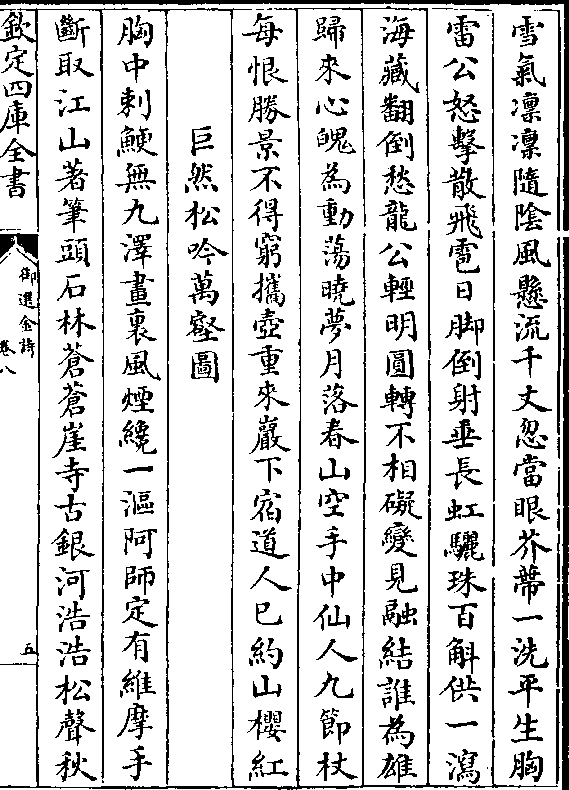 雪氣凛凛隨陰風懸流千丈忽當眼芥蔕一洗平生胸
雷公怒擊散飛雹日脚倒射垂長虹驪珠百斛供一瀉
海藏翻倒愁龍公輕明圓轉不相礙變見融結誰為雄
歸來心魄為動蕩曉夢月落春山空手中仙人九節杖
每恨勝景不得窮攜壺重來巖下宿道人已約山櫻紅
巨然松吟萬壑圖
胸中刺鯁無九澤畫裏風煙纔一漚阿師定有維摩手
斷取江山著筆頭石林蒼蒼崖寺古銀河浩浩松聲秋
欽定四庫全書
御選金詩
卷八
五